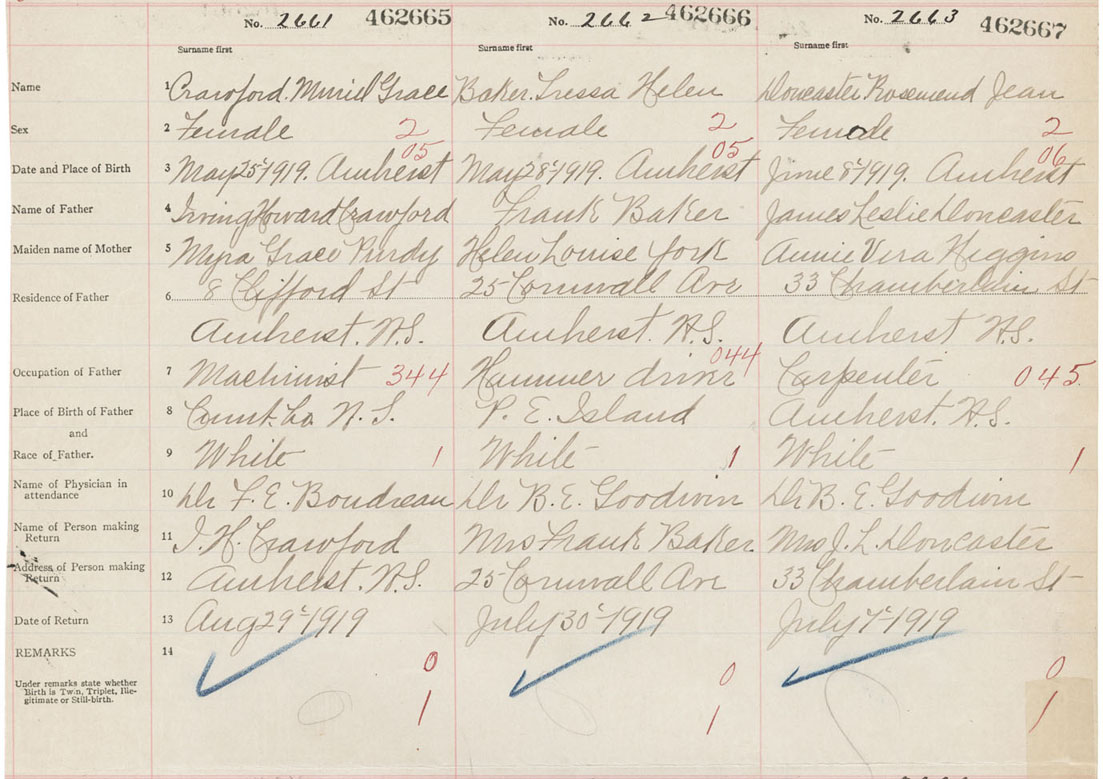 No. 2661 462665 No. 2662 462666 No. 2663 462667
Surname first Surname first Surname first
Name 1 Crawford. Muriel Grace Baker. Tressa Helen Doncaster Rosemend Jean
Sex 2 Female 2 Female 2 Female 2
05 05 06
Date and Place of Birth 3 May 25-1919. Amherst May 28-1919. Amherst June 8-1919. Amherst
Name of Father 4 Irving Howard Crawford Frank Baker James Leslie Doncaster
Maiden name of Mother 5 Myra Grace Purdy Helen Louise York Annie Vera Higgins
Residence of Father 6 8 Clifford St 25 Cornwall Ave 33 Chamberlain St
Amherst. N.S. Amherst. N.S. Amherst N.S.
Occupation of Father 7 Machinist 344 Hammer driver 044 Carpenter 045
Place of Birth of Father 8 Cumb. Co. N.S. P. E. Island Amherst. N.S.
and
Race of Father. 9 White 1 White 1 White 1
Name of Physician in attendance 10 Dr F. E. Boudreau Dr B. E. Goodwin Dr B. E. Goodwin
Name of Person making Return 11 I. H. Crawford Mrs Frank Baker Mrs J. L. Doncaster
Address of Person making Return 12 Amherst. N.S. 25 Cornwall Ave 33 Chamberlain St
Date of Return 13 Aug 29-1919 July 30-1919 July 7-1919
REMARKS 14 0 0 0
Under remarks state whether
Birth is Twin, Triplet, Ille-
gitimate or Still-birth. 1 1 1